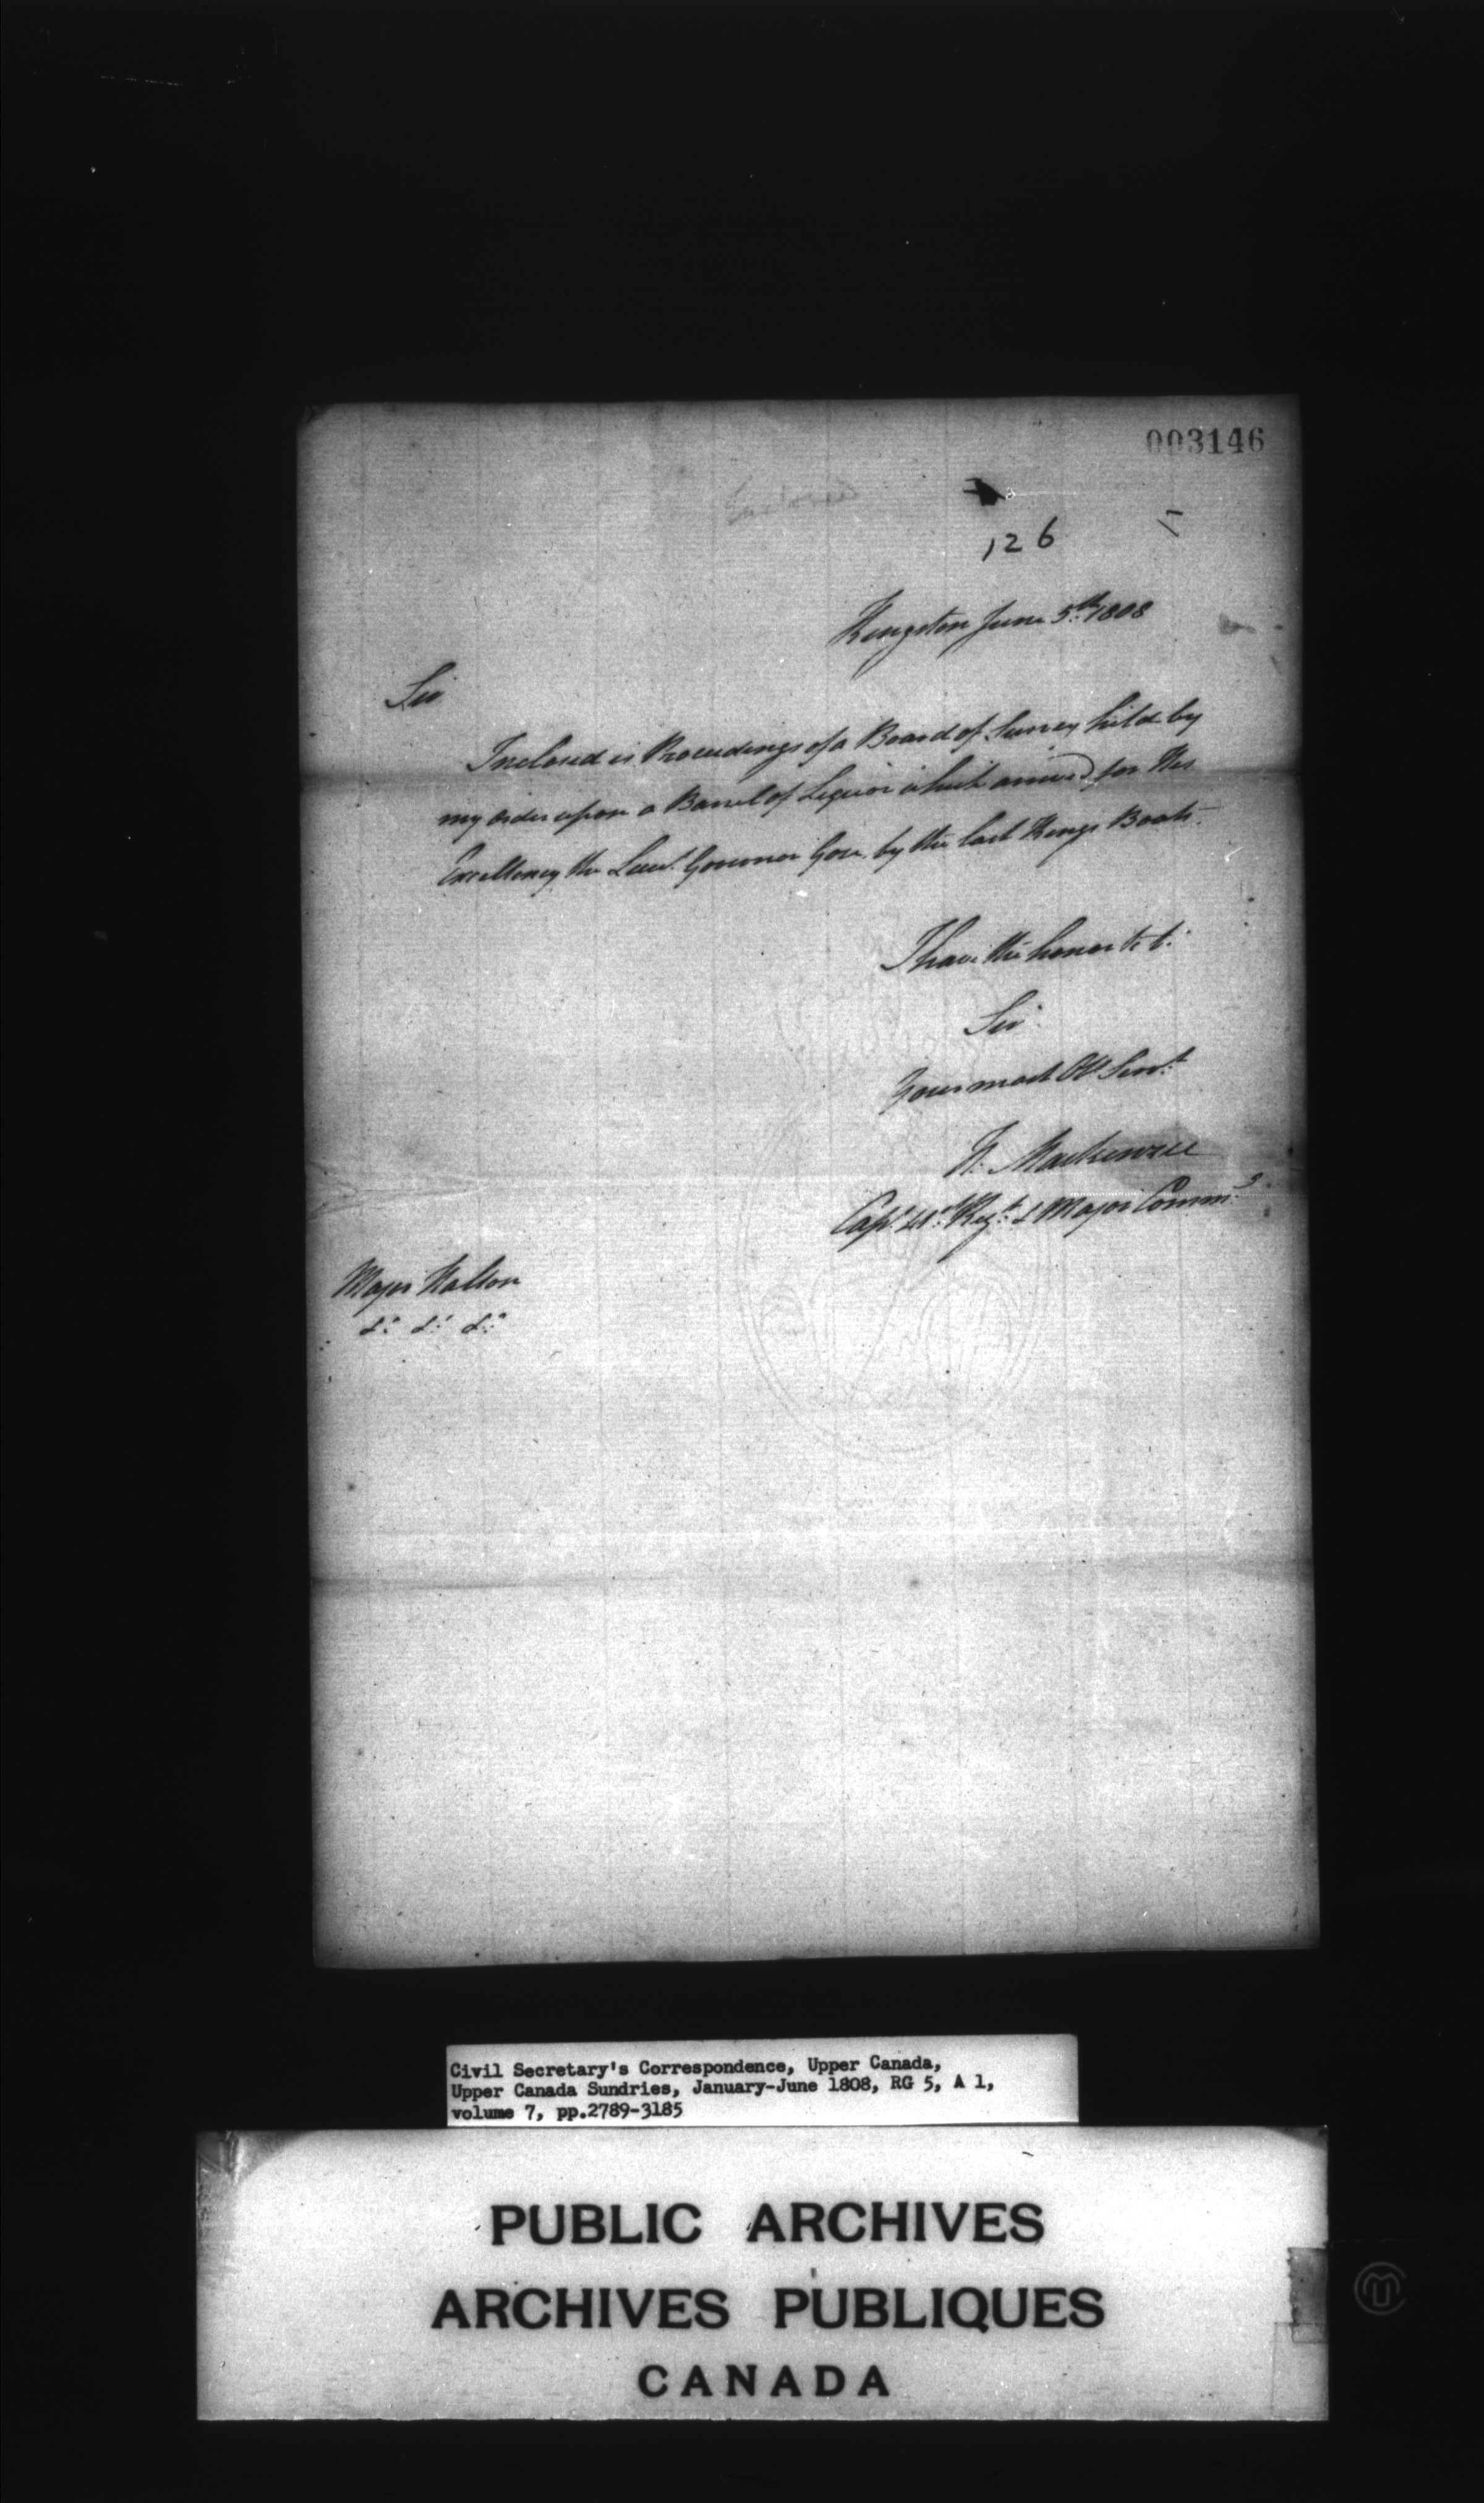 003146
126
Kingston June 5th. 1808
Sir
Inclosed is Proceedings of a Board of Survey held by
my order upon a Barrel of Liquor which arrived for His
Excellency the Lieut. Governor Gore by the last Kings Boats.
I have the honor to be
Sir
Your most Obt Servt
Mackenzie
Capt. 41st Regt. & Major Commg.
Major Halton
&c &c &c
Civil Secretary's Correspondence, Upper Canada,
Upper Canada Sundries, January-June 1808, RG 5, A 1,
volume 7, pp.2789-3185
PUBLIC ARCHIVES
ARCHIVES PUBLIQUES
CANADA